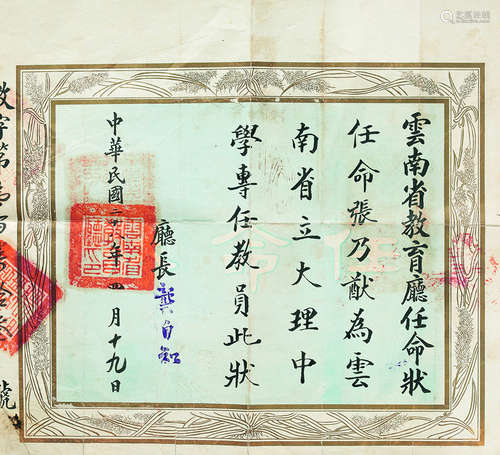 雲南省教育廳任命狀
任命張乃猷為雲
南省立大理中
學專任教員此狀
廳長 龔自知
中華民國二十八年四月十九日
教字第
號